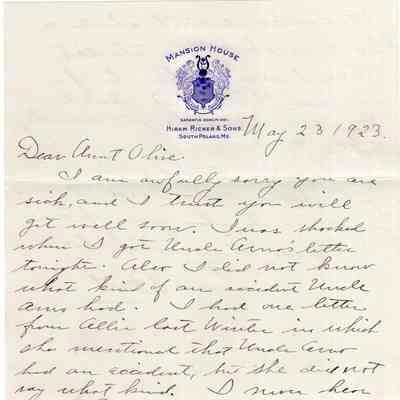 MANSION HOUSE
HIRAM RICKER & SONS.
SOUTH POLAND, ME.
May 23 1923.
Dear Aunt Olive.
I am awfully sorry you are
sick, and I trust you will
get well soon. I was shocked
when I got Uncle Arno's letter
tonight. Also I did not know
what kind of an accident Uncle
Arno had. I had one letter
from Allie last Winter in which
she mentioned that Uncle Arno
had an accident, but she did not
say what kind. I never hear